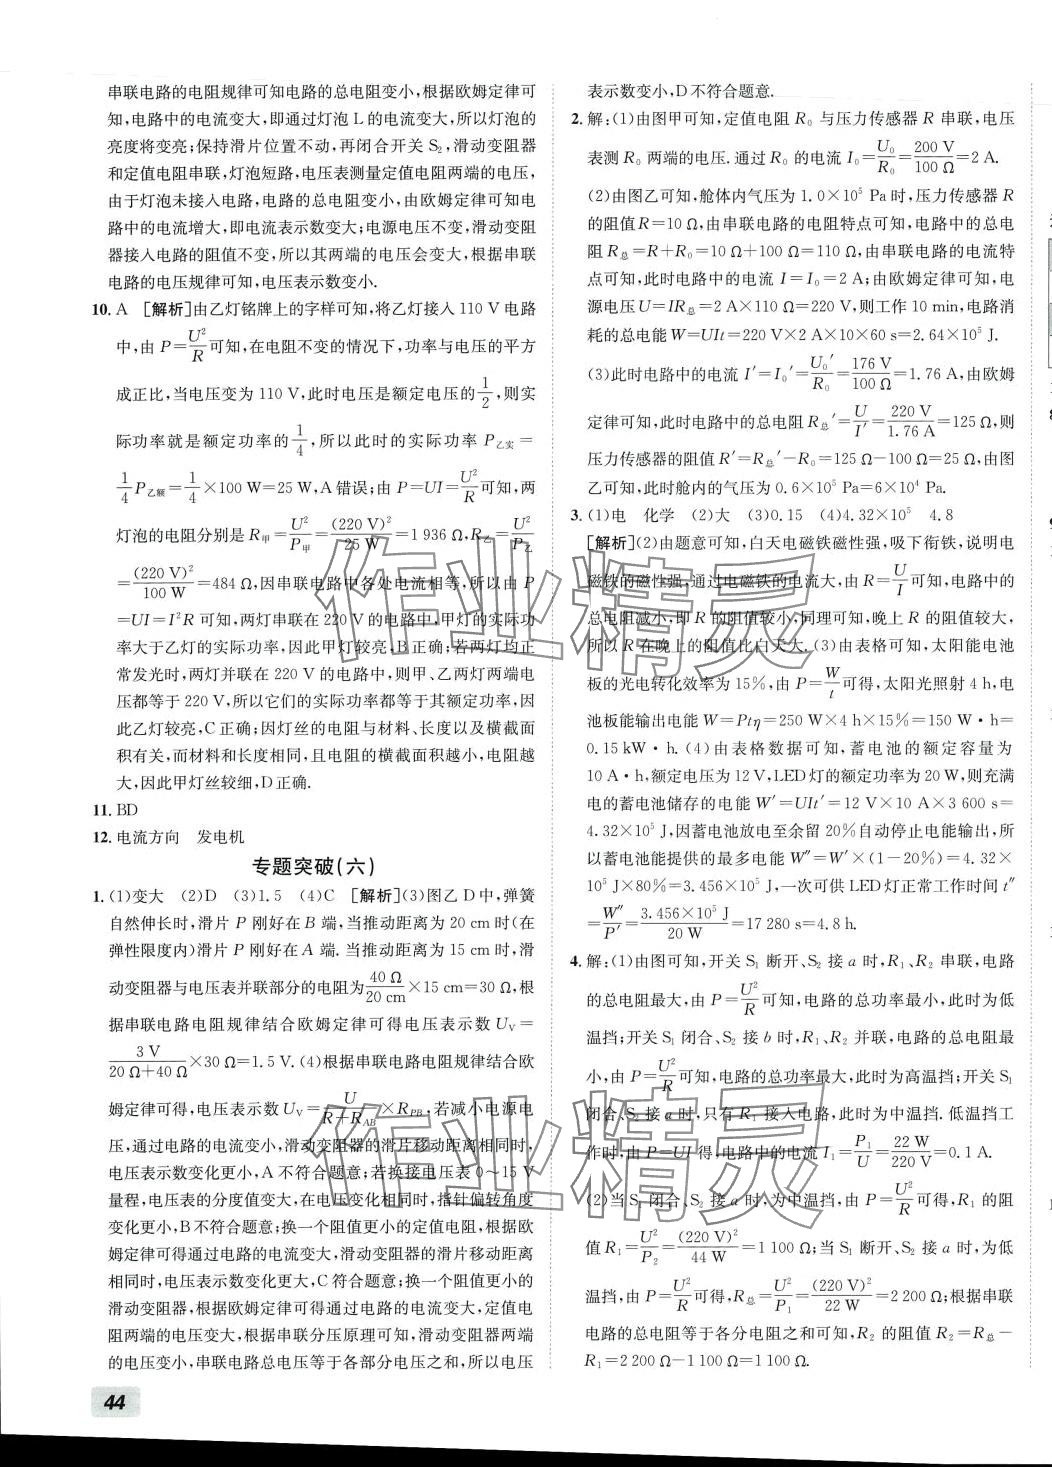 串联电路的电阻规律可知电路的总电阻变小,根据欧姆定律可
知,电路中的电流变大,即通过灯泡 L 的电流变大,所以灯泡的
亮度将变亮;保持滑片位置不动,再闭合开关 S₂,滑动变阻器
和定值电阻串联,灯泡短路,电压表测量定值电阻两端的电压,
由于灯泡未接入电路,电路的总电阻变小,由欧姆定律可知电
路中的电流增大,即电流表示数变大;电源电压不变,滑动变阻
器接入电路的阻值不变,所以其两端的电压会变大,根据串联
电路的电压规律可知,电压表示数变小.
10. A [解析]由乙灯铭牌上的字样可知,将乙灯接入 110 V 电路
中,由 P=U²/R可知,在电阻不变的情况下,功率与电压的平方
成正比,当电压变为 110 V,此时电压是额定电压的1/2,则实
际功率就是额定功率的1/4,所以此时的实际功率 P乙实=
1/4P乙额=1/4×100 W=25 W,A 错误;由 P=UI=U²/R可知,两
灯泡的电阻分别是 R甲=U²/P甲=(220 V)²/25 W=1 936 Ω,R乙=U²/P乙
=(220 V)²/100 W=484 Ω,因串联电路中各处电流相等,所以由 P
=UI=I²R 可知,两灯串联在 220 V 的电路中,甲灯的实际功
率大于乙灯的实际功率,因此甲灯较亮,B 正确;若两灯均正
常发光时,两灯并联在 220 V 的电路中,则甲、乙两灯两端电
压都等于 220 V,所以它们的实际功率都等于其额定功率,因
此乙灯较亮,C 正确;因灯丝的电阻与材料、长度以及横截面
积有关,而材料和长度相同,且电阻的横截面积越小,电阻越
大,因此甲灯丝较细,D 正确.
11. BD
12. 电流方向 发电机
专题突破(六)
1. (1)变大 (2)D (3)1.5 (4)C [解析](3)图乙 D 中,弹簧
自然伸长时,滑片 P 刚好在 B 端,当推动距离为 20 cm 时(在
弹性限度内)滑片 P 刚好在 A 端. 当推动距离为 15 cm 时,滑
动变阻器与电压表并联部分的电阻为40 Ω/20 cm×15 cm=30 Ω,根
据串联电路电阻规律结合欧姆定律可得电压表示数 Uᵥ=
3 V/(20 Ω+40 Ω)×30 Ω=1.5 V. (4)根据串联电路电阻规律结合欧
姆定律可得,电压表示数 Uᵥ=U/(R+R_AB)×R_PB,若减小电源电
压,通过电路的电流变小,滑动变阻器的滑片移动距离相同时,
电压表示数变化更小,A 不符合题意;若换接电压表 0～15 V
量程,电压表的分度值变大,在电压变化相同时,指针偏转角度
变化更小,B不符合题意;换一个阻值更小的定值电阻,根据欧
姆定律可得通过电路的电流变大,滑动变阻器的滑片移动距离
相同时,电压表示数变化更大,C 符合题意;换一个阻值更小的
滑动变阻器,根据欧姆定律可得通过电路的电流变大,定值电
阻两端的电压变大,根据串联分压原理可知,滑动变阻器两端
的电压变小,串联电路总电压等于各部分电压之和,所以电压
44
表示数变小,D 不符合题意.
2. 解:(1)由图甲可知,定值电阻 R₀ 与压力传感器 R 串联,电压
表测 R₀ 两端的电压. 通过 R₀ 的电流 I₀=U₀/R₀=200 V/100 Ω=2 A.
(2)由图乙可知,舱体内气压为 1.0×10⁵ Pa 时,压力传感器 R
的阻值 R=10 Ω,由串联电路的电阻特点可知,电路中的总电
阻 R总=R+R₀=10 Ω+100 Ω=110 Ω,由串联电路的电流特
点可知,此时电路中的电流 I=I₀=2 A;由欧姆定律可知,电
源电压 U=IR总=2 A×110 Ω=220 V,则工作 10 min,电路消
耗的总电能 W=UIt=220 V×2 A×10×60 s=2.64×10⁵ J.
(3)此时电路中的电流 I′=I₀′=U₀′/R₀=176 V/100 Ω=1.76 A,由欧姆
定律可知,此时电路中的总电阻 R总′=U/I′=220 V/1.76 A=125 Ω,则
压力传感器的阻值 R′=R总′−R₀=125 Ω−100 Ω=25 Ω,由图
乙可知,此时舱内的气压为 0.6×10⁵ Pa=6×10⁴ Pa.
3. (1)电 化学 (2)大 (3)0.15 (4)4.32×10⁵ 4.8
[解析](2)由题意可知,白天电磁铁磁性强,吸下衔铁,说明电
磁铁的磁性强,通过电磁铁的电流大,由 R=U/I可知,电路中的
总电阻减小,即 R 的阻值较小,同理可知,晚上 R 的阻值较大,
所以 R 在晚上的阻值比白天大. (3)由表格可知,太阳能电池
板的光电转化效率为 15%,由 P=W/t可得,太阳光照射 4 h,电
池板能输出电能 W=Ptη=250 W×4 h×15%=150 W·h=
0.15 kW·h. (4)由表格数据可知,蓄电池的额定容量为
10 A·h,额定电压为 12 V,LED 灯的额定功率为 20 W,则充满
电的蓄电池储存的电能 W′=UIt′=12 V×10 A×3 600 s=
4.32×10⁵ J,因蓄电池放电至余留 20%自动停止电能输出,所
以蓄电池能提供的最多电能 W″=W′×(1−20%)=4.32×
10⁵ J×80%=3.456×10⁵ J,一次可供 LED 灯正常工作时间 t″
=W″/P′=3.456×10⁵ J/20 W=17 280 s=4.8 h.
4. 解:(1)由图可知,开关 S₁ 断开、S₂ 接 a 时,R₁、R₂ 串联,电路
的总电阻最大,由 P=U²/R可知,电路的总功率最小,此时为低
温挡;开关 S₁ 闭合、S₂ 接 b 时,R₁、R₂ 并联,电路的总电阻最
小,由 P=U²/R可知,电路的总功率最大,此时为高温挡;开关 S₁
闭合、S₂ 接 a 时,只有 R₁ 接入电路,此时为中温挡. 低温挡工
作时,由 P=UI 得,电路中的电流 I₁=P₁/U=22 W/220 V=0.1 A.
(2)当 S₁ 闭合、S₂ 接 a 时,为中温挡,由 P=U²/R可得,R₁ 的阻
值 R₁=U²/P₂=(220 V)²/44 W=1 100 Ω;当 S₁ 断开、S₂ 接 a 时,为低
温挡,由 P=U²/R可得,R总=U²/P₁=(220 V)²/22 W=2 200 Ω;根据串联
电路的总电阻等于各分电阻之和可知,R₂ 的阻值 R₂=R总−
R₁=2 200 Ω−1 100 Ω=1 100 Ω.
作业精灵
作业精灵